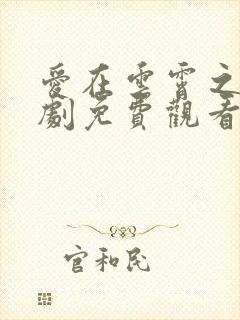 愛在雲霄之
劇免費觀看
官和民